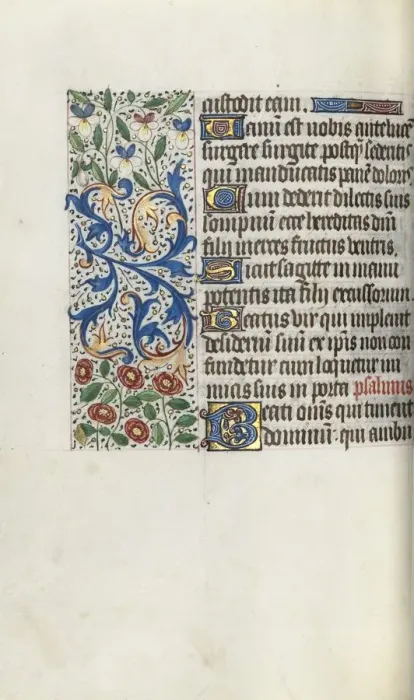 custodit eam.
Vanum est vobis ante luce
surgere surgite postq̄ sederitis
qui manducatis panē doloris
Cum dederit dilectis suis
sompnum ecce hereditas dn̄i
filij merces fructus ventris.
Sicut sagitte in manu
potentis ita filij excussorum
Beatus vir qui implevit
desideriū suū ex ipsis non con
fundetur cum loquetur ini
micis suis in porta psalmus
Beati oīnes qui timent
dominum: qui ambu